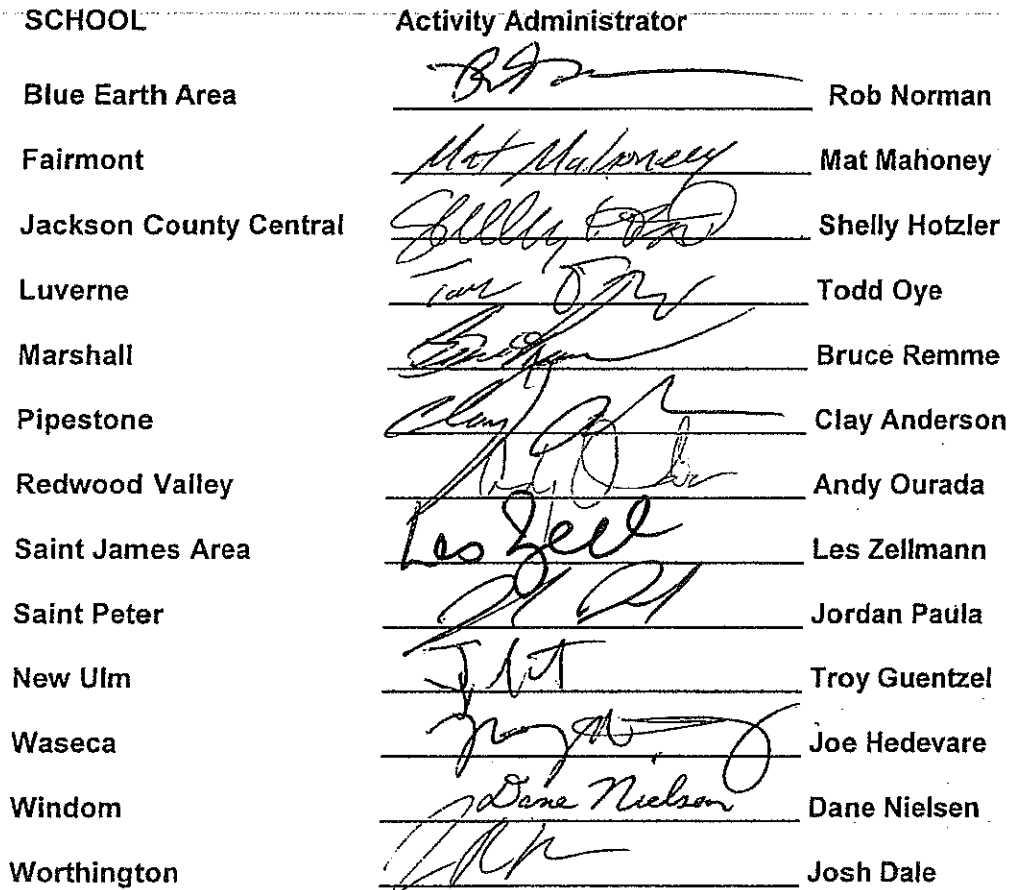 SCHOOL Activity Administrator
Blue Earth Area Rob Norman
Fairmont Mat Mahoney Mat Mahoney
Jackson County Central Shelly Shelly Hotzler
Luverne Todd Oye
Marshall Bruce Remme
Pipestone Clay Clay Anderson
Redwood Valley Andy Ourada
Saint James Area Les Zell Les Zellmann
Saint Peter Jordan Paula
New Ulm Troy Guentzel
Waseca Joe Hedevare
Windom Dane Nielsen Dane Nielsen
Worthington Josh Dale